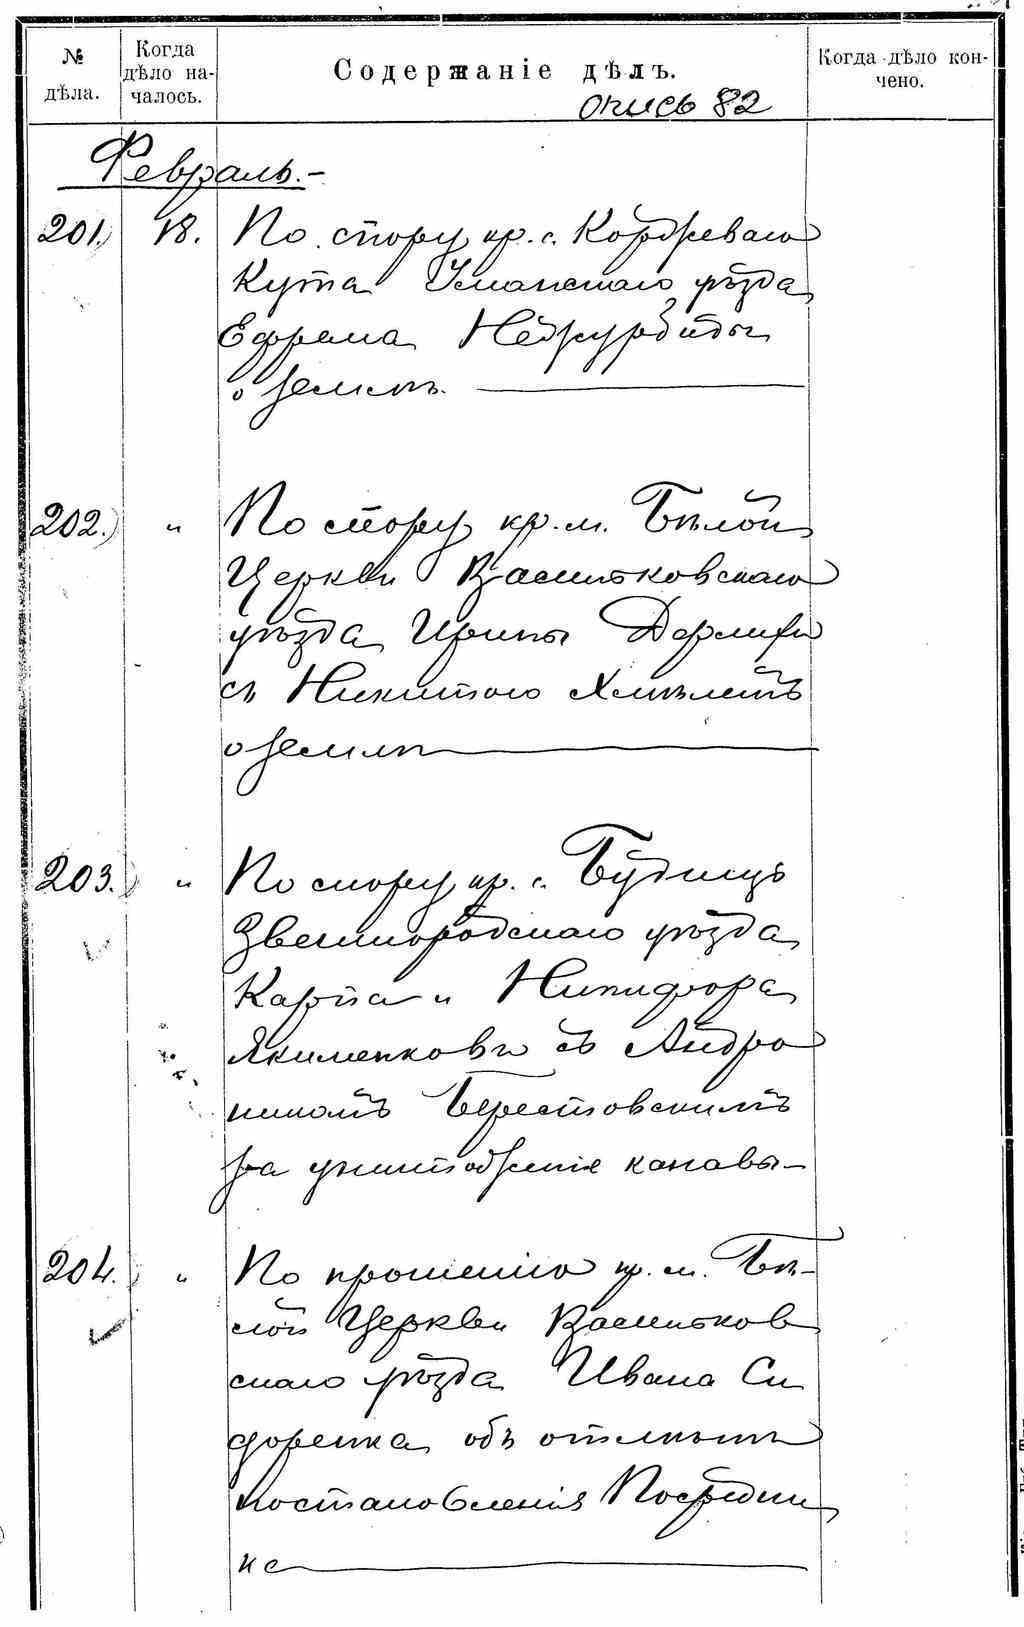 № дѣла.
Когда дѣло началось.
Содержаніе дѣлъ.
Когда дѣло кончено.
опись 82
Февраль.-
201.) 18. По спору кр. с. Коржеваго
Кута Уманскаго уѣзда
Ефрема Нежурбиды
о землѣ.
202.) " По спору кр. м. Бѣлой
Церкви Васильковскаго
уѣзда Ирины
съ Никитою Хмѣлемъ
о землѣ
203.) " По спору кр. с. Будищъ
Звенигородскаго уѣзда
Карпа и Никифора
Якименковъ съ Андро
никомъ Берестовскимъ
за уничтоженіе канавы-
204.) " По прошенію кр. м. Бѣ-
лой Церкви Васильков
скаго уѣзда Ивана Си
доренка объ отмѣнѣ
постановленія Посредни
ка